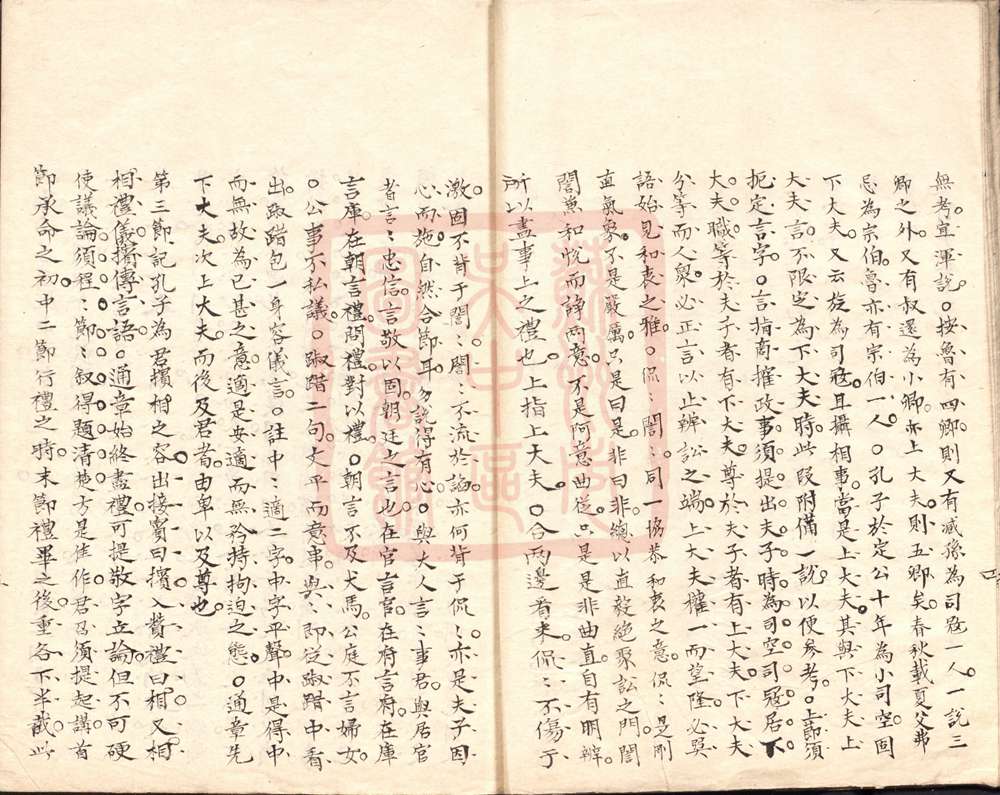 無考宜渾說。按魯有四卿則又有滅孫為司冦一人。一說三
卿之外又有叔還為小卿亦上大夫則五卿矣春秋載夏父弗
忌為宗伯魯亦有宗伯一人。○孔子於定公十年為小司空固
下大夫。又云旋為司冦且攝相事當是上大夫。其與下大夫上
大夫言不限定為下大夫時此段附備一說以便參考。上節須
扼定言字。○言指商搉政事須提出夫子時為司空司冦居下
大夫。職等於夫子者有下大夫尊於夫子者有上大夫下大夫
分等而人衆必正言以止辨訟之端上大夫權一而望隆必巽
語始見和衷之雅。○侃〻誾〻同一協恭和衷之意侃〻是剛
直氣象不是嚴厲只是曰是非曰非總以直道絕聚訟之門誾
誾兼和悅而諍兩意不是阿意曲從只是是非曲直自有明辨
所以盡事上之禮也上指上大夫。○合兩邊看來。侃〻不傷于
激。固不背于誾〻誾〻不流於諂亦何背于侃〻亦是夫子因
心而施自然合節耳勿說得有心。○與大人言〻事君與居官
者言〻忠信言敬以固朝廷之言也在官言官在府言府在庫
言庫在朝言禮問禮對以禮。朝言不及犬馬。公庭不言婦女
。公事不私議。○踧踖二句文平而意串。與〻即從踧踖中看
出踧踖包一身容儀言。○註中〻適二字中字平聲中是得中
而無故為已甚之意適是安適而無矜持拘迫之態。○通章先
下大夫。次上大夫。而後及君者由卑以及尊也。
第三節記孔子為君擯相之容。出接賓曰擯入贊禮曰相。又相
相禮儀擯傳言語。○通章始終盡禮可提敬字立論但不可硬
使議論須程〻節〻叙得題清楚方是佳作君召須提起講首
節承命之初。中二節行禮之時。末節禮畢之後。重各下半截此